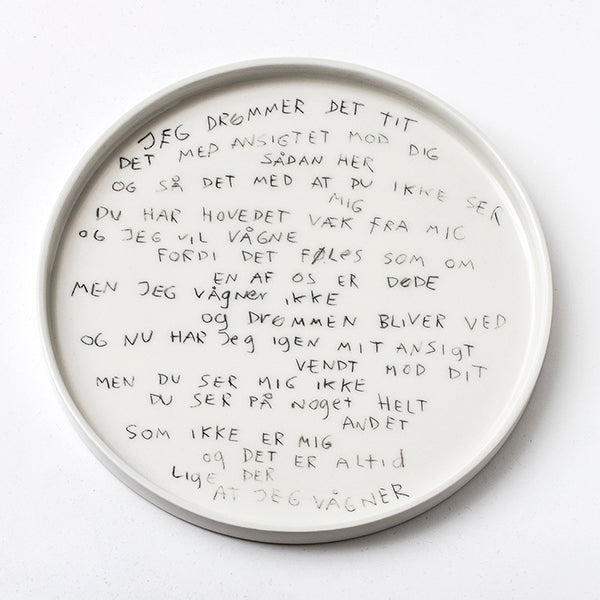 JEG DRØMMER DET TIT
DET MED ANSIGTET MOD DIG
SÅDAN HER
OG SÅ DET MED AT DU IKKE SER
MIG
DU HAR HOVEDET VÆK FRA MIG
OG JEG VIL VÅGNE
FORDI DET FØLES SOM OM
EN AF OS ER DØDE
MEN JEG VÅgNer IKKE
og DRØMMEN BLIVER VED
OG NU HAR Jeg IgEN MIT ANSIgT
VENDT MOD DIT
MEN DU SER MIG IKKE
DU SER PÅ Noget HELT
ANDET
SOM IKKE ER MIG
og DET ER ALtid
Lige DER
AT JEG VÅGNER